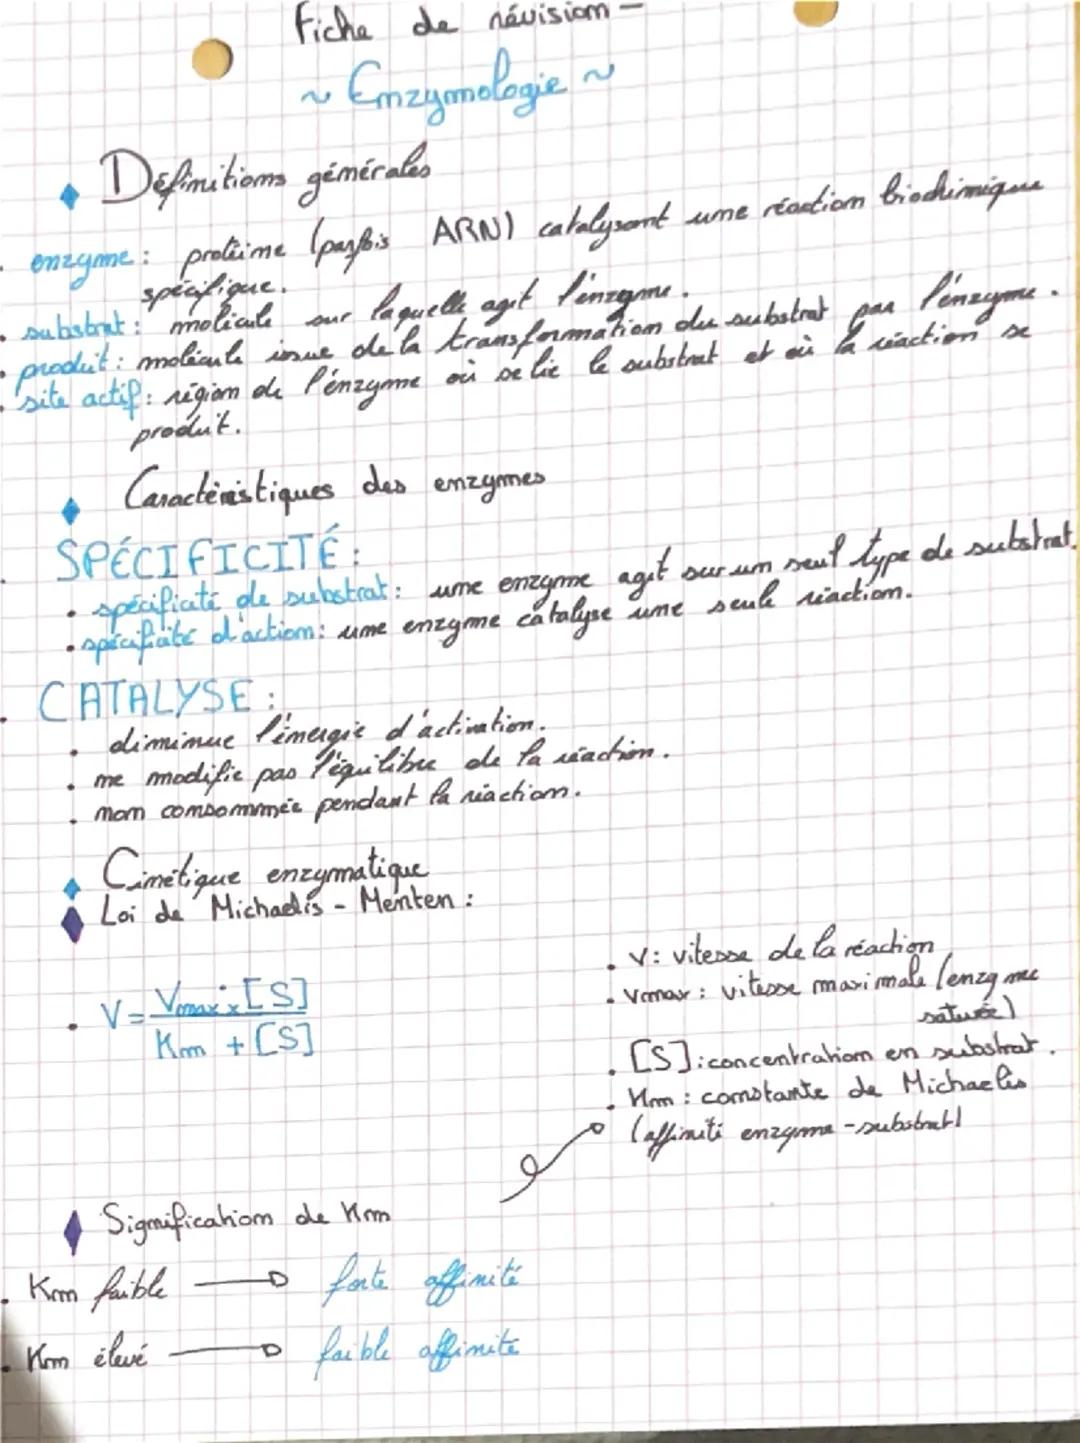 Fiche de révision -
~ Enzymologie ~
Définitions générales
enzyme : protéine (parfois ARN) catalysant une réaction biochimique
spécifique.
substrat : molécule sur laquelle agit l'enzyme.
produit : molécule issue de la transformation du substrat par l'énzyme.
site actif : région de l'énzyme où se lie le substrat et où la réaction se
produit.
Caractéristiques des enzymes
SPÉCIFICITÉ :
• spécificité de substrat : une enzyme agit sur un seul type de substrat.
• spécificité d'action : une enzyme catalyse une seule réaction.
CATALYSE :
• diminue l'énergie d'activation.
• ne modifie pas l'équilibre de la réaction.
• non consommée pendant la réaction.
Cinétique enzymatique
Loi de Michaelis - Menten :
• V = Vmax x [S]
Km + [S]
• V : vitesse de la réaction
• Vmax : vitesse maximale (enzyme
saturée)
• [S] : concentration en substrat.
• Km : constante de Michaelis
(affinité enzyme - substrat)
Signification de Km
• Km faible → forte affinité
• Km élevé → faible affinité